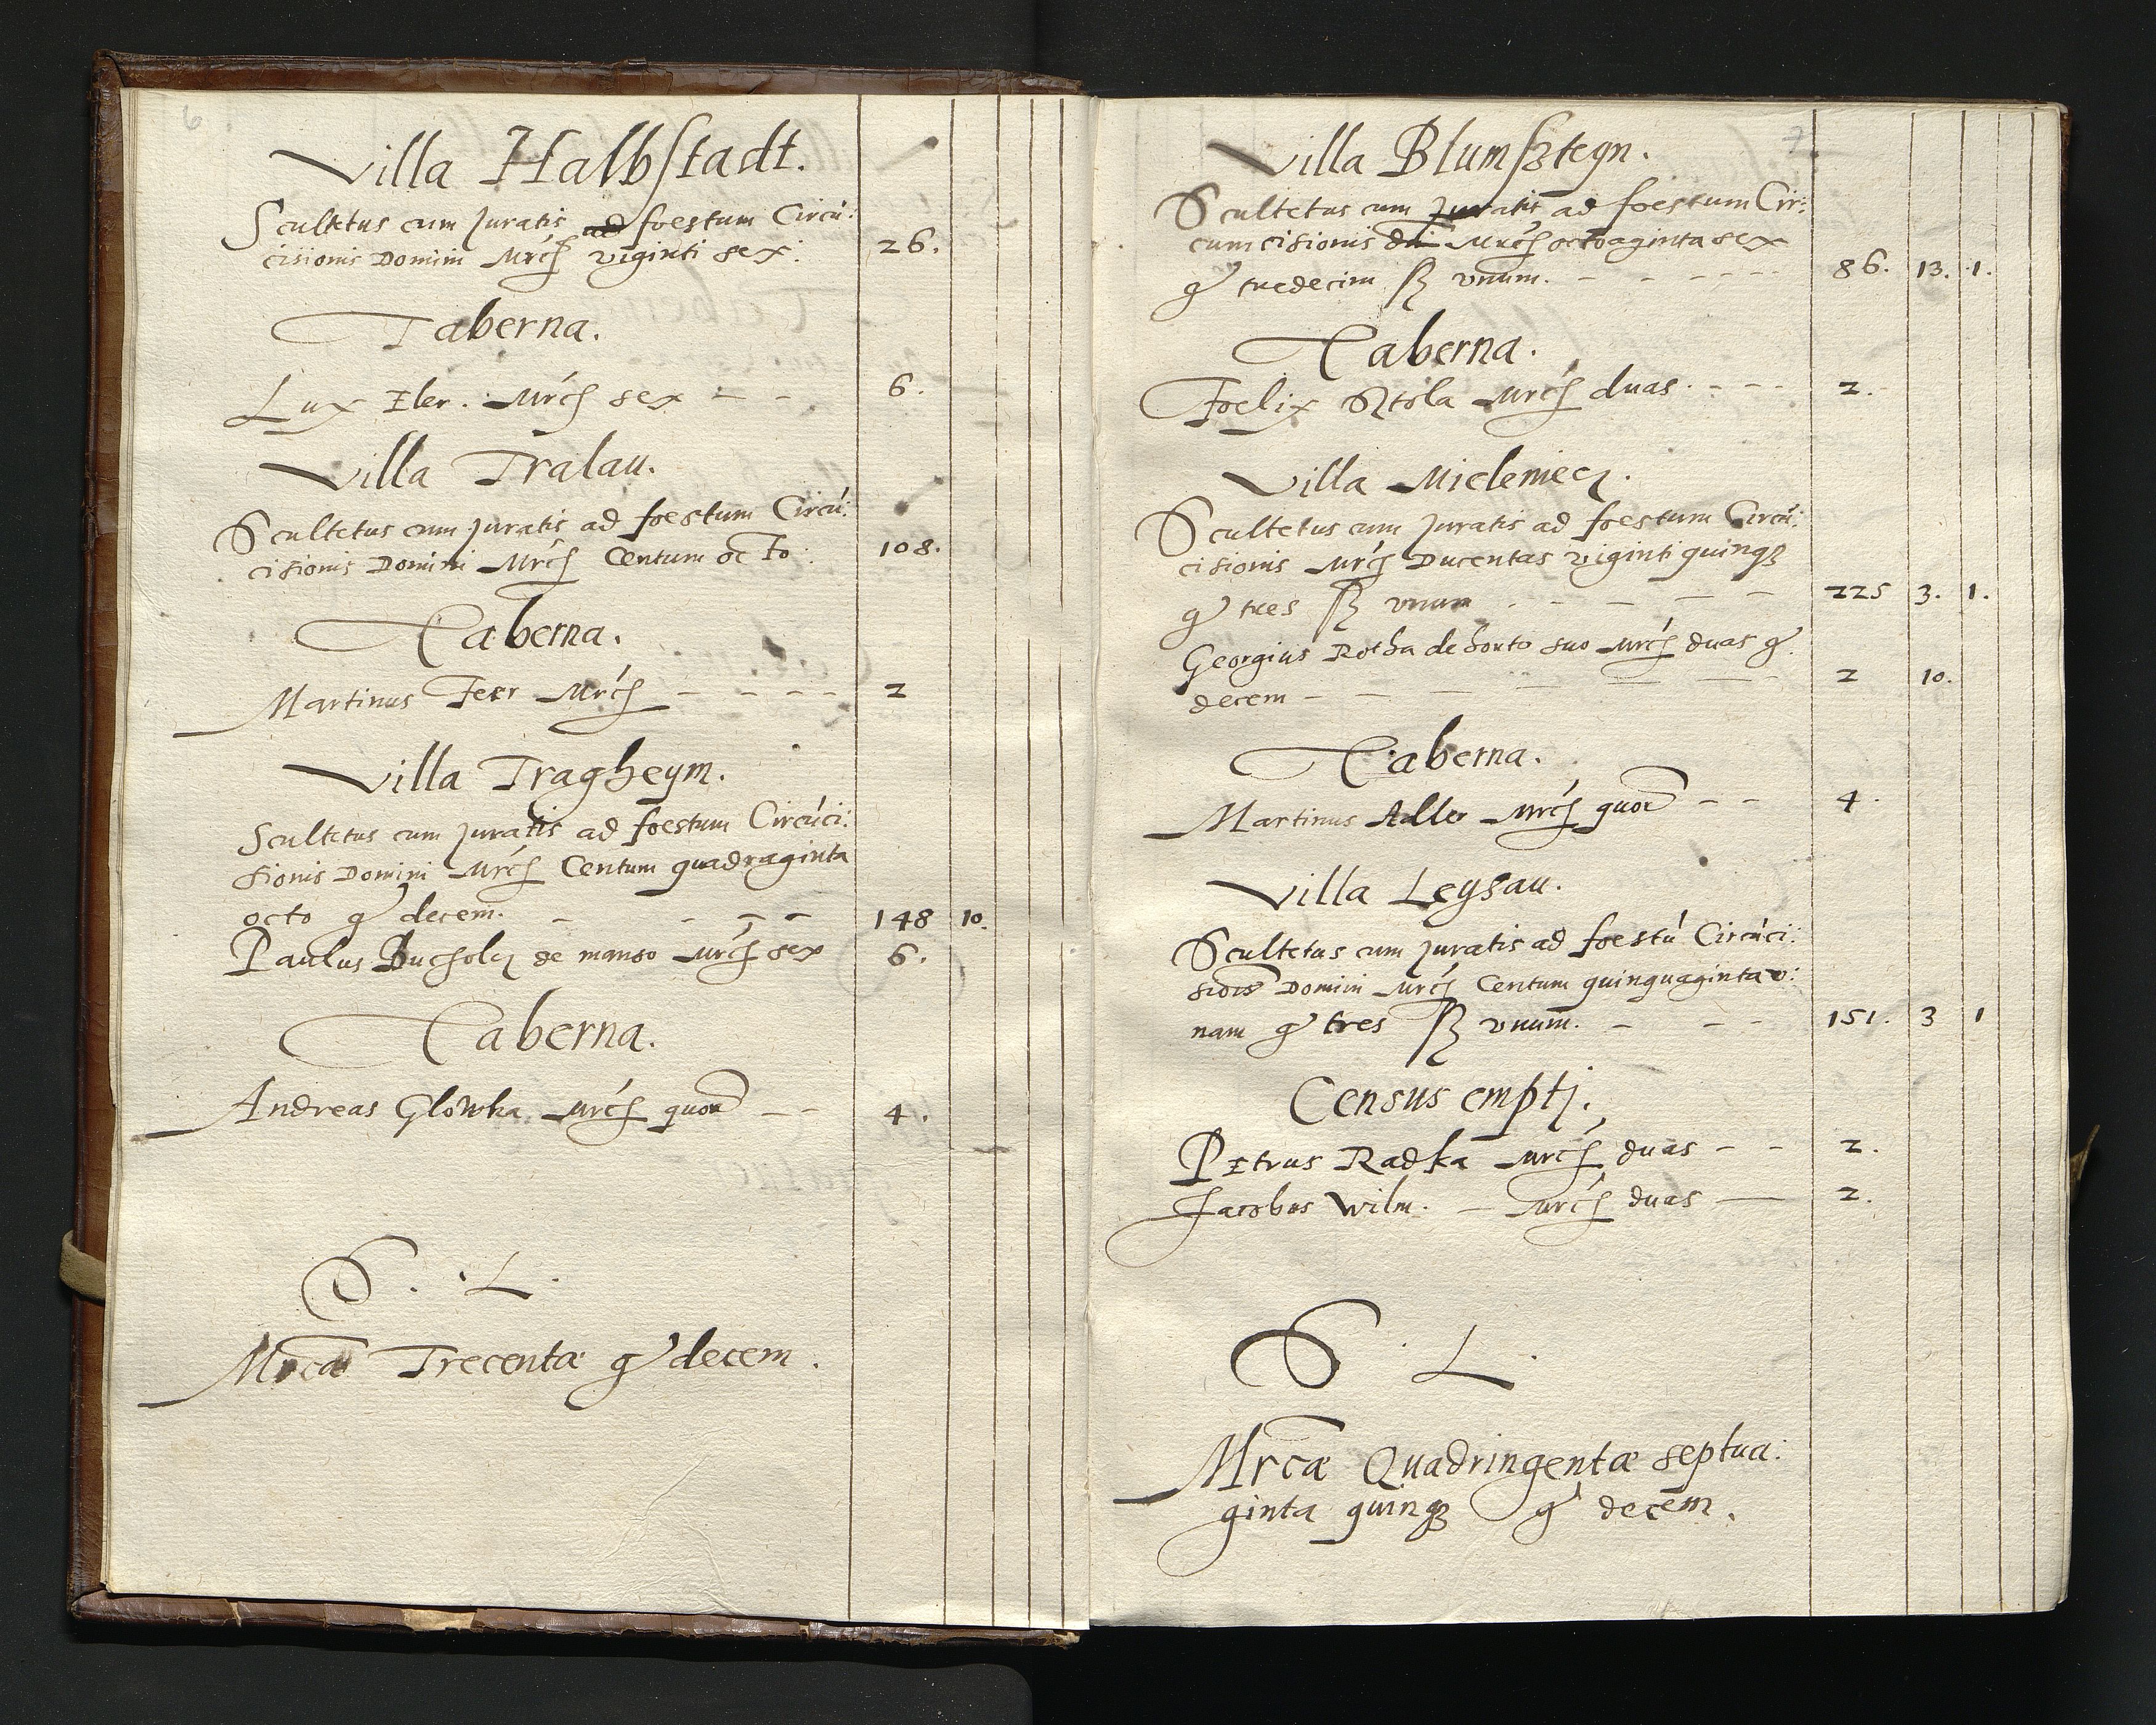 6
Villa Halbstadt.
Scultetus cum Juratis ad foestum Circũ:
cisionis Domini Mrcs viginti sex. 26.
Taberna.
Lux Eler. Mrcs sex - - 6.
Villa Tralau.
Scultetus cum Juratis ad foestum Circũ:
cisionis Domini Mrcs Centum octo. 108.
Taberna.
Martinus Feer Mrcs - - - - 2
Villa Tragheym.
Scultetus cum Juratis ad foestum Circũci:
sionis Domini Mrcs Centum quadraginta
octo gͬ decem. - - - - 148 10.
Paulus Bucholcz de manso Mrcs sex 6.
Taberna.
Andreas Glowka Mrcs quor - - 4.
S. L.
Mrcæ Trecentæ gͬ decem.
7
Villa Blumszteyn.
Scultetus cum Juratis ad foestum Cir:
cumcisionis dni Mrcs octoaginta sex
gͬ tredecim ß vnum. - - - - - - 86. 13. 1.
Taberna.
Foelix Stola Mrcs duas. - - - 2.
Villa Mielemiecz.
Scultetus cum Juratis ad foestum Circũ:
cisionis Mrcs Ducentas viginti quinqꝫ
gͬ tres ß vnum - - - - - 225 3. 1.
Georgius Rotha de horto suo Mrcs duas gͬ
decem - - - - - - - 2 10.
Taberna.
Martinus Adler Mrcs quor - - 4.
Villa Leysau.
Scultetus cum Juratis ad foestũ Circũci:
siois Domini Mrcs Centum quinquaginta v:
nam gͬ tres ß vnum. - - - 151. 3 1
Census emptj.
Petrus Radka Mrcs duas - - 2.
Jacobus Wilm. - Mrcs duas - 2.
S. L.
Mrcæ Quadringentæ septua:
ginta quinqꝫ gͬ decem.